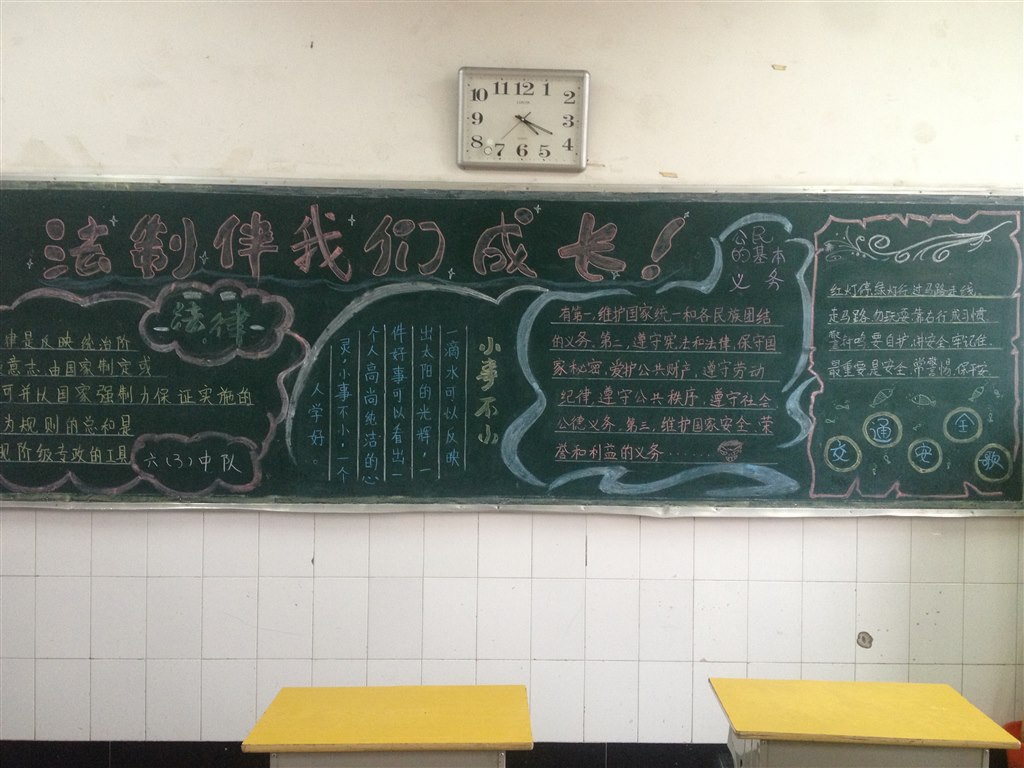 11 12 1
10 2
9 3
8 4
7 6 5
法制伴我们成长!
法律
律是反映统治阶
意志,由国家制定或
可并以国家强制力保证实施的
为规则的总和是
阶级专政的工具
六(3)中队
小事不小
一滴水可以反映
出太阳的光辉,一
件好事可以看出一
个人高尚纯洁的心
灵,小事不小,一个
人学好。
公民
的基本
义务
有第一,维护国家统一和各民族团结
的义务。第二,遵守宪法和法律,保守国
家秘密,爱护公共财产,遵守劳动
纪律,遵守公共秩序,遵守社会
公德义务。第三,维护国家安全、荣
誉和利益的义务......
红灯停绿灯行,过马路走线,
走马路,勿跃 靠右行成习惯
鸣 要自护,讲安全 牢记住,
最重要是安全,常警惕,保平安
交通安全歌